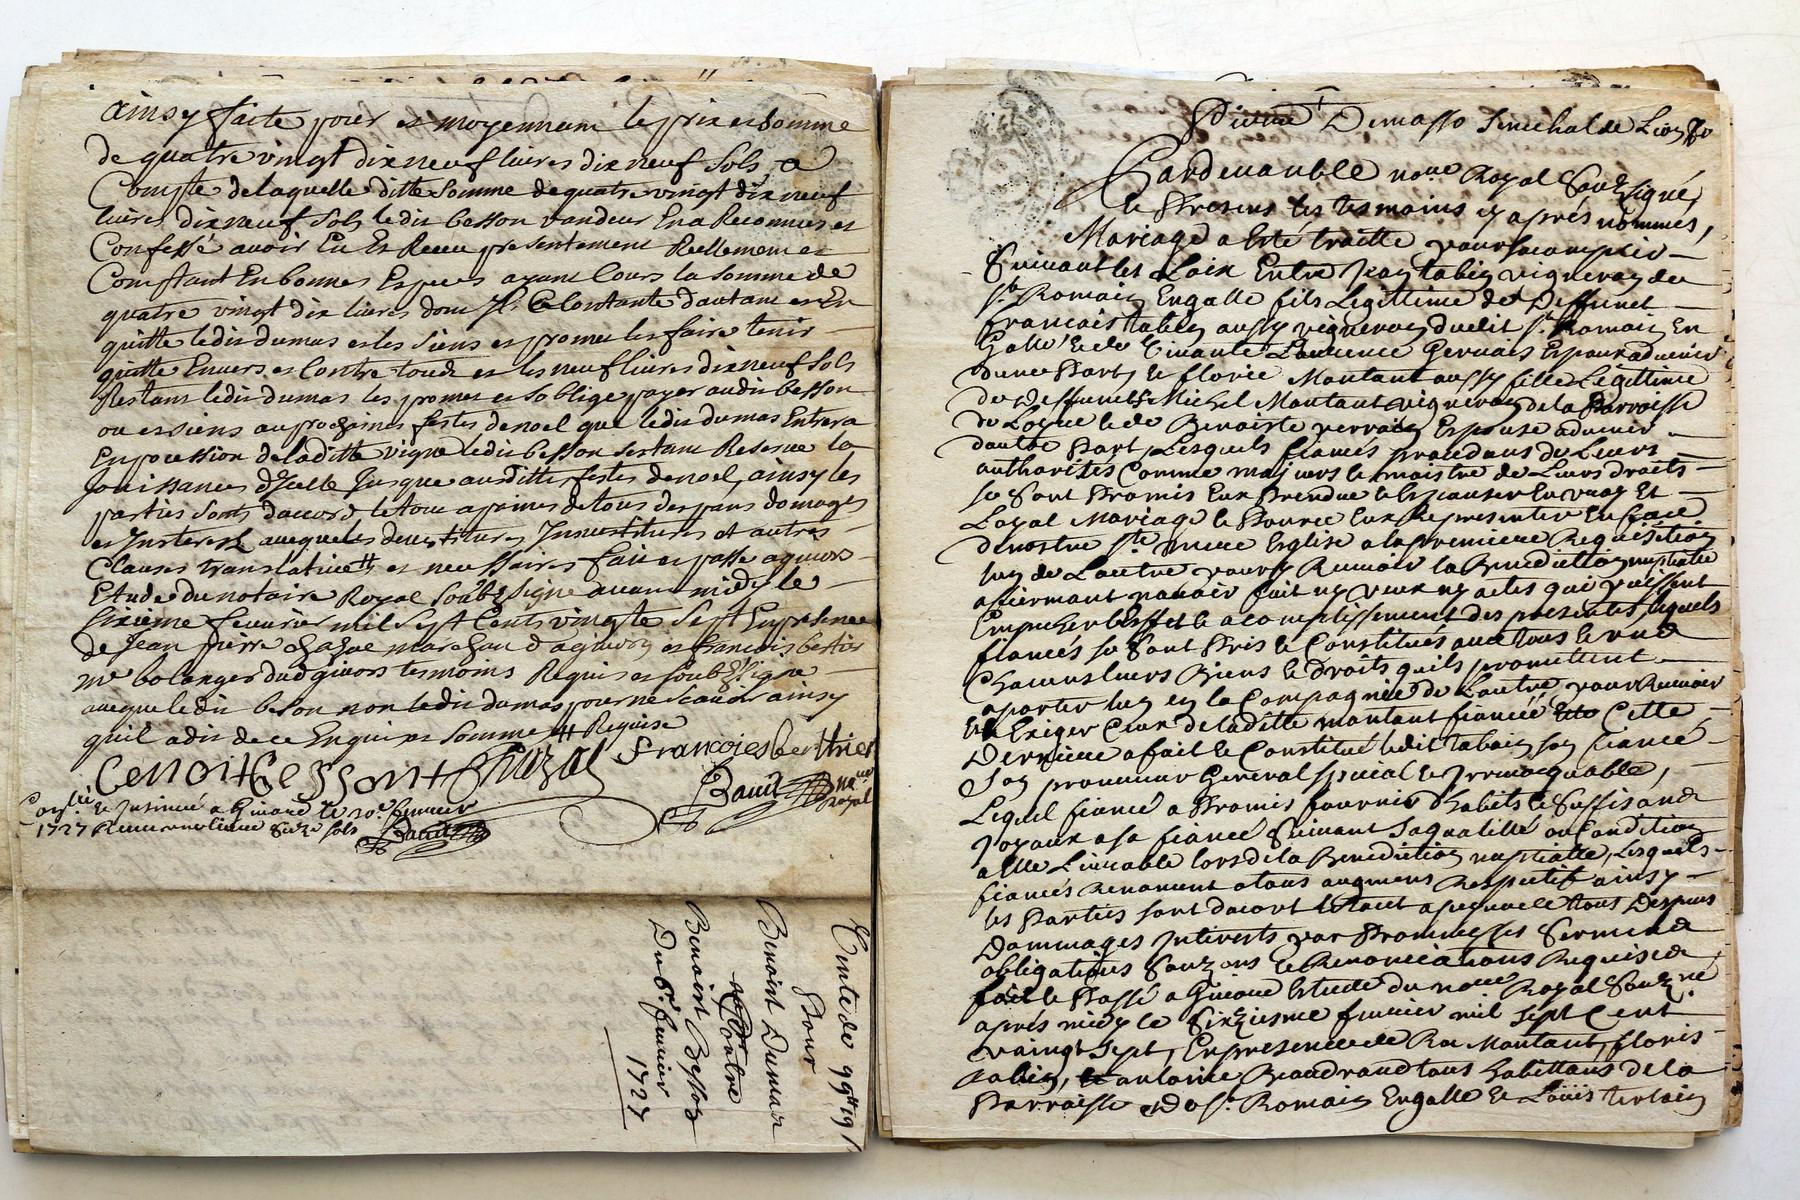 ainsy faitte pour et moyennant le prix et somme
de quatre vingt dix neuf livres dix neuf sols a
Compte de laquelle ditte somme de quatre vingt dix neuf
livres dix neuf sols ledit besson vandeur En a Reconnus et
Confessé avoir Eu Et Receu presentement Reellement et
Comptant En bonnes Especes ayant Cours la somme de
quatre vingt dix livres dont Il Se Contante d'autant et En
quitte ledit dumas et les siens et promet les faire tenir
quitte Envers et Contre touts et les neuf livres dix neuf sols
Restant ledit dumas les promet et s'oblige payer audit besson
ou es siens au prochaines festes de noel que ledit dumas Entrera
En pocession de laditte vigne ledit besson s'estant Reservé la
jouissances d'Icelle Jusque ausdittes festes de noel, ainsy les
parties sont d'accord le tout a peines de tous despans domages
et Insterest avec Investitures et autres
Clauses translatives et necessaires fait et passé a givors
Etude du notaire Royal soubsigné avant midy le
sixieme fevrier mil sept Cents vingte sept En presence
de Jean pierre chazal marchan d a givors et francois bertier
me bolanger dud givors tesmoins Requis et soubssigne
avec ledit beson non ledit dumas pour ne scavoir ainsy
qu'il a dit de ce Enquis et somme Requise
benoit besson Chazal francoies berthier
Bauit nre royal
Conllé Et Insinué a Givord le 20e fevrier
1727 Receu sols Bauit
Vente de 99 19
Pour
Benoist Dumas
Contre
Benoist Besson
Du 6e fevrier
1727
Pierre Demasso senechal de Lion
Pardevant le noe Royal Soubzsigné
Et Presens les tesmoins cy aprés nommés,
Mariage a Esté traitté pour s'acomplir
Suivant les Loix Entre Jean tabin vigneron de
st Romain En galle fils Legittime de Deffunct
francois tabin aussy vigneron dudit st Romain En
Galle Et de vivante Laurence Gervais Espoux advenir
d'une Part, Et florie Montant aussy fille Legittime
de Deffunct Michel Montant vigneron de la Parroisse
de Loyre Et de Benoiste verrain Espouse advenir
d'autre Part, Lesquels fiancés procedans de Leurs
authorités Comme majeurs Et maistre de Leurs droits
se Sont Promis Eux Prendre Et Espouser En vray Et
Loyal Mariage Et Pource Eux Representer En face
de nostre ste mere Esglise a la premiere Requisition
Lun de L'autre pour y Recevoir la Benediction nuptialle
afiermant n'avoir fait ny veux ny actes qui puissent
Empescher l'effet Et acomplissement des presentes, lesquels
fiancés se Sont Pris Et Constitués avec tous Et un
Chacuns leurs Biens Et Droits qu'ils promettent
aporter lun en la Compagnie de L'autre, pour Recevoir
Et Exiger Ceux de laditte montant fiancée Cette
Derniere a fait Et Constitué ledit tabin son fiancé
son procureur General special Et Irrevoquable,
Lequel fiancé a Promis fournir d'habits Et Suffisans
Joyaux a sa fiancée Suivant sa qualitté ou Condition
a Elle Livrable lors de la Benediction nuptialle, Lesquels
fiancés Renoncent a tous augmens Respectif ainsy
les Parties sont d'acort Et tout a peine de tous Despens
Dommages Interests par Promesses Serment
obligations Soumissions Et Renonciations Requises
fait Et Passé a Givors Estude du noe Royal Soubzné
aprés midy le Sixziesme fevrier mil sept Cent
vaingt sept, En presence de Montant, floris
tabin, antoine Beaudrand tous habittans de la
Parroisse de st Romain En galle Et Louis